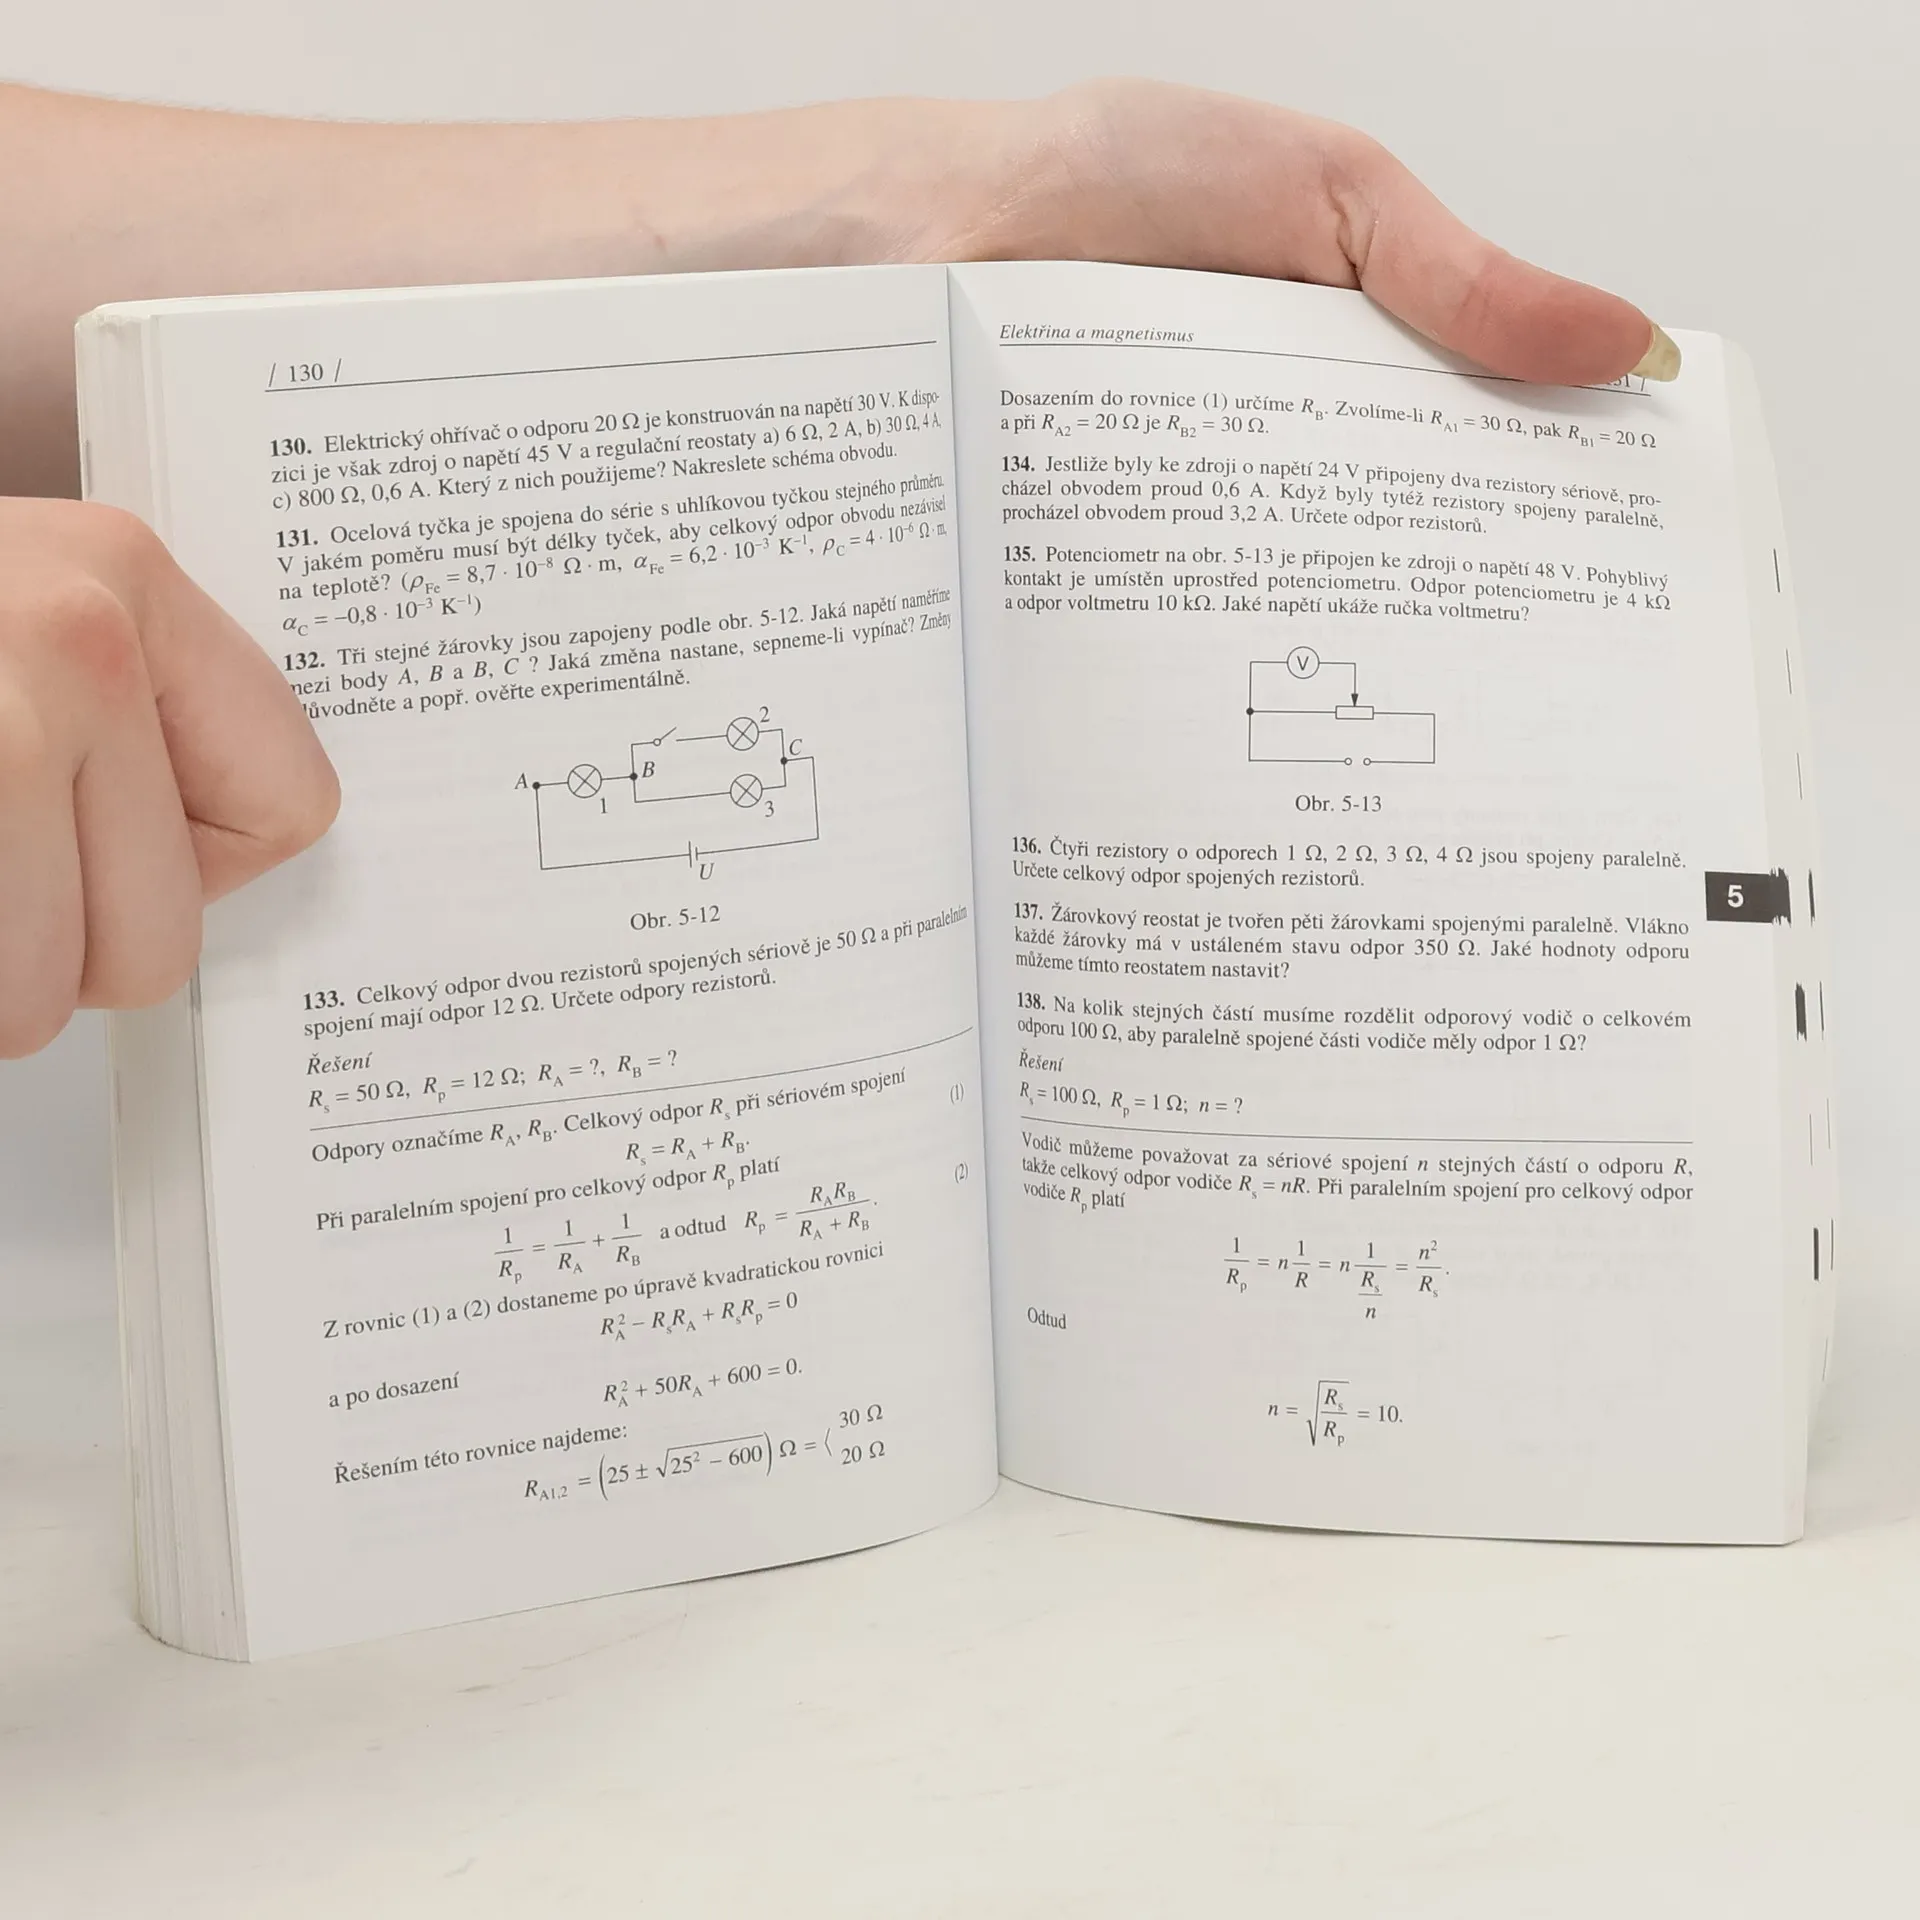 / 130 /
130. Elektrický ohřívač o odporu 20 Ω je konstruován na napětí 30 V. K dispo-
zici je však zdroj o napětí 45 V a regulační reostaty a) 6 Ω, 2 A, b) 30 Ω, 4 A,
c) 800 Ω, 0,6 A. Který z nich použijeme? Nakreslete schéma obvodu.
131. Ocelová tyčka je spojena do série s uhlíkovou tyčkou stejného průměru.
V jakém poměru musí být délky tyček, aby celkový odpor obvodu nezávisel
na teplotě? (ρFe = 8,7 · 10⁻⁸ Ω · m, αFe = 6,2 · 10⁻³ K⁻¹, ρC = 4 · 10⁻⁶ Ω · m,
αC = −0,8 · 10⁻³ K⁻¹)
132. Tři stejné žárovky jsou zapojeny podle obr. 5-12. Jaká napětí naměříme
mezi body A, B a B, C ? Jaká změna nastane, sepneme-li vypínač? Změny
důvodněte a popř. ověřte experimentálně.
A
1
B
2
C
3
U
Obr. 5-12
133. Celkový odpor dvou rezistorů spojených sériově je 50 Ω a při paralelním
spojení mají odpor 12 Ω. Určete odpory rezistorů.
Řešení
Rs = 50 Ω, Rp = 12 Ω; RA = ?, RB = ?
Odpory označíme RA, RB. Celkový odpor Rs při sériovém spojení
Rs = RA + RB. (1)
Při paralelním spojení pro celkový odpor Rp platí
1/Rp = 1/RA + 1/RB a odtud Rp = RARB/(RA + RB). (2)
Z rovnic (1) a (2) dostaneme po úpravě kvadratickou rovnici
RA² − RsRA + RsRp = 0
a po dosazení
RA² + 50RA + 600 = 0.
Řešením této rovnice najdeme:
RA1,2 = (25 ± √(25² − 600)) Ω = ⟨ 30 Ω
20 Ω
Elektřina a magnetismus
Dosazením do rovnice (1) určíme RB. Zvolíme-li RA1 = 30 Ω, pak RB1 = 20 Ω
a při RA2 = 20 Ω je RB2 = 30 Ω.
134. Jestliže byly ke zdroji o napětí 24 V připojeny dva rezistory sériově, pro-
cházel obvodem proud 0,6 A. Když byly tytéž rezistory spojeny paralelně,
procházel obvodem proud 3,2 A. Určete odpor rezistorů.
135. Potenciometr na obr. 5-13 je připojen ke zdroji o napětí 48 V. Pohyblivý
kontakt je umístěn uprostřed potenciometru. Odpor potenciometru je 4 kΩ
a odpor voltmetru 10 kΩ. Jaké napětí ukáže ručka voltmetru?
V
Obr. 5-13
136. Čtyři rezistory o odporech 1 Ω, 2 Ω, 3 Ω, 4 Ω jsou spojeny paralelně.
Určete celkový odpor spojených rezistorů.
137. Žárovkový reostat je tvořen pěti žárovkami spojenými paralelně. Vlákno
každé žárovky má v ustáleném stavu odpor 350 Ω. Jaké hodnoty odporu
můžeme tímto reostatem nastavit?
138. Na kolik stejných částí musíme rozdělit odporový vodič o celkovém
odporu 100 Ω, aby paralelně spojené části vodiče měly odpor 1 Ω?
Řešení
Rs = 100 Ω, Rp = 1 Ω; n = ?
Vodič můžeme považovat za sériové spojení n stejných částí o odporu R,
takže celkový odpor vodiče Rs = nR. Při paralelním spojení pro celkový odpor
vodiče Rp platí
1/Rp = n 1/R = n 1/(Rs/n) = n²/Rs.
Odtud
n = √(Rs/Rp) = 10.
5